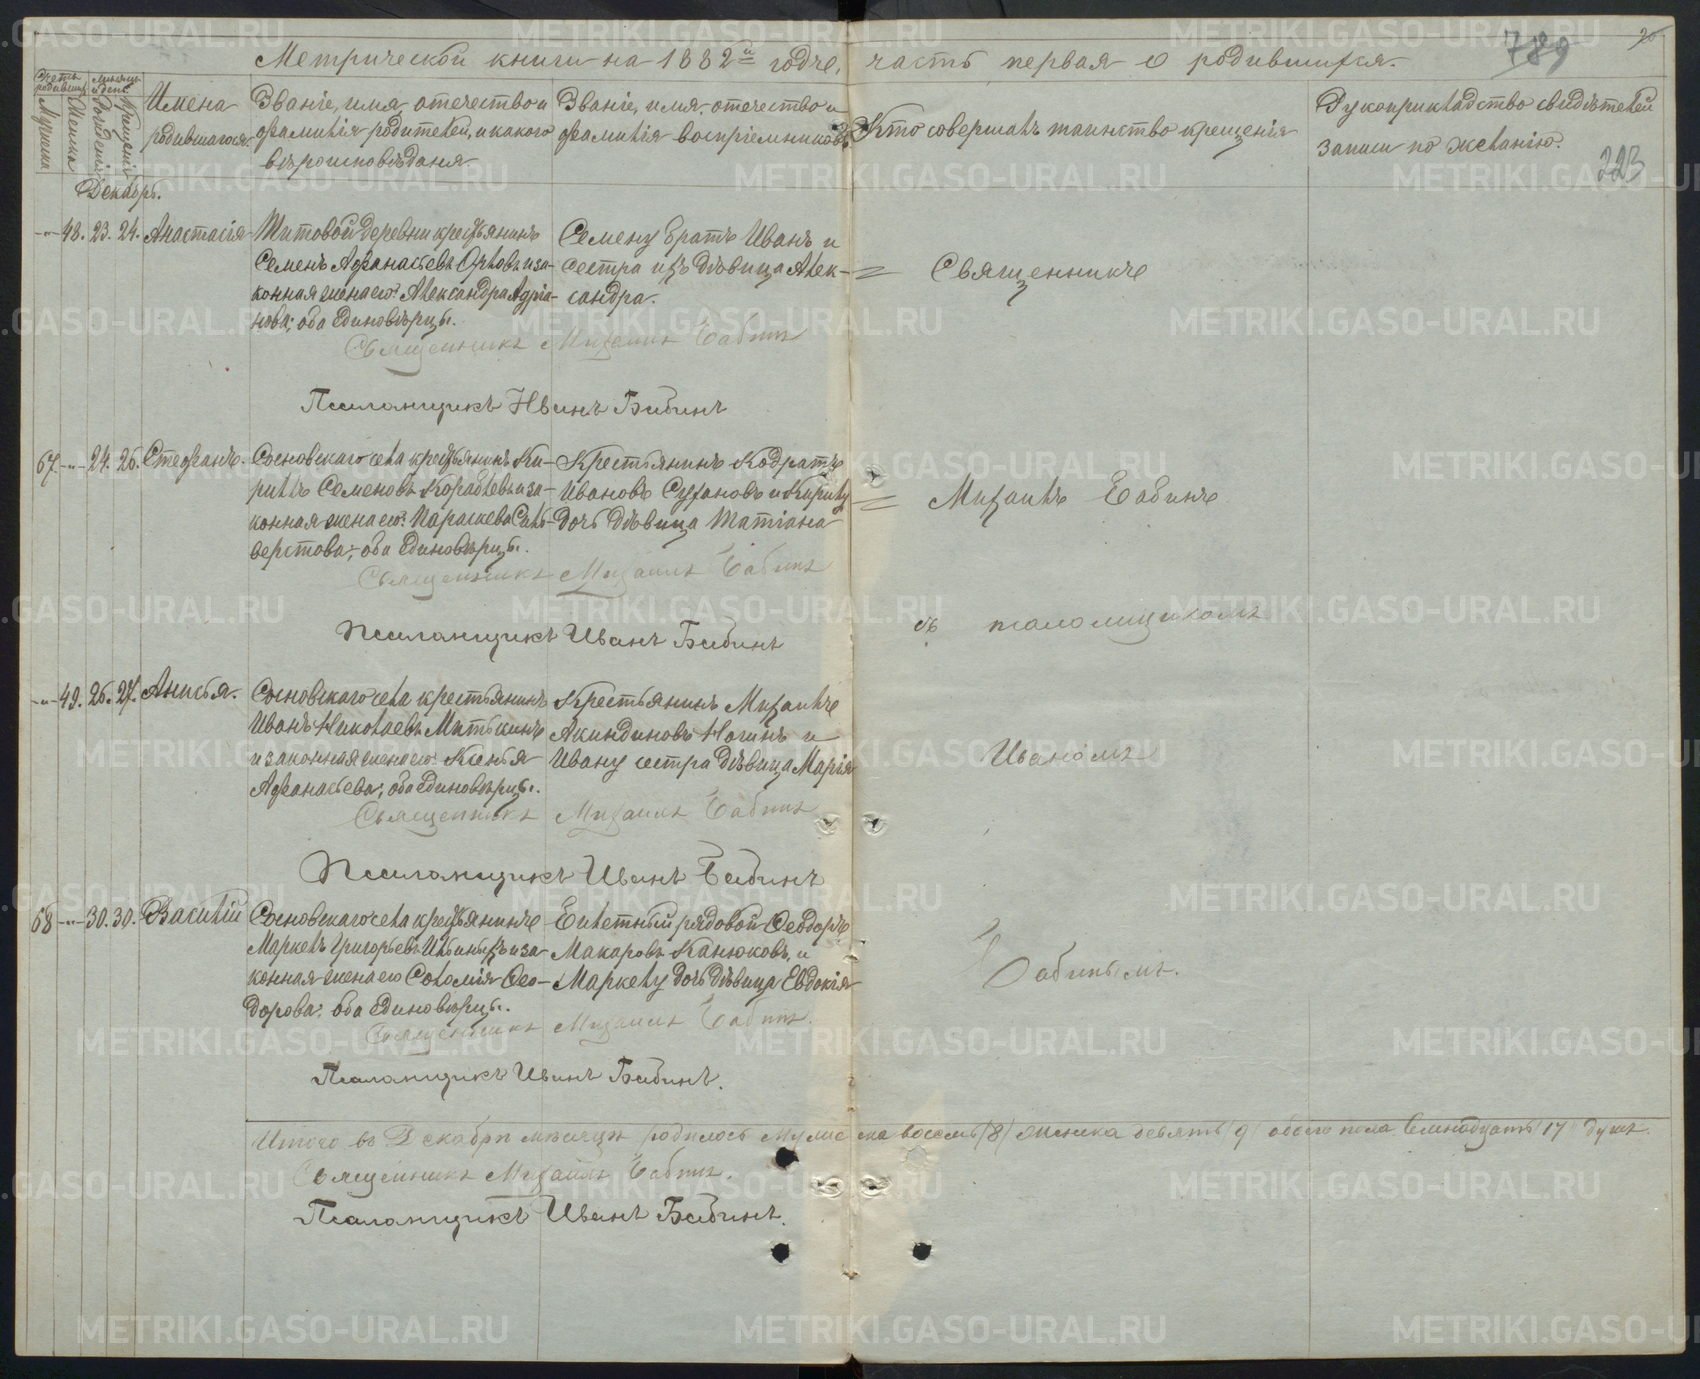 Метрической книги на 1882й годъ, часть первая о родившихся.
789
223
Счетъ родившихся
Мужеска
Женска
Мѣсяцъ и день
Рожденія
Крещенія
Имена
родившагося.
Званіе, имя, отечество и
фамилія родителей, и какого
вѣроисповѣданія
Званіе, имя, отечество и
фамилія воспріемниковъ
Кто совершалъ таинство крещенія
Рукоприкладство свидѣтелей
записи по желанію.
Декабрь.
48. 23. 24. Анастасія
Титовой деревни крестьянинъ
Семенъ Аѳанасьевъ Орловъ и за-
конная жена его Александра Адріа-
нова; оба единовѣрцы.
Семену братъ Иванъ и
сестра ихъ дѣвица Алек-
сандра.
Священникъ Михаилъ Бабинъ
Псаломщикъ Иванъ Бабинъ
67. 24. 26. Стефанъ.
Сосновскаго села крестьянинъ Ки-
риллъ Семеновъ Кораблевъ и за-
конная жена его Параскева Сель-
верстова; оба единовѣрцы.
Крестьянинъ Кодратъ
Ивановъ Сухановъ и Кириллу
дочь дѣвица Татіана
Священникъ Михаилъ Бабинъ
Псаломщикъ Иванъ Бабинъ
49. 26. 27. Анисья.
Сосновскаго села крестьянинъ
Иванъ Николаевъ Митькинъ
и законная жена его Ксенья
Аѳанасьева; оба единовѣрцы.
Крестьянинъ Михаилъ
Акиндиновъ Ногинъ и
Ивану сестра дѣвица Марія
Священникъ Михаилъ Бабинъ
Псаломщикъ Иванъ Бабинъ
68 30. 30. Василій
Сосновскаго села крестьянинъ
Маркелъ Григорьевъ Ильиныхъ и за-
конная жена его Соломія Ѳео-
дорова; оба единовѣрцы.
Билетный рядовой Ѳеодоръ
Макаровъ Канюковъ, и
Маркелу дочь дѣвица Евдокія
Священникъ Михаилъ Бабинъ.
Псаломщикъ Иванъ Бабинъ.
Священникъ
Михаилъ Бабинъ
съ псаломщикомъ
Иваномъ
Бабинымъ.
Итого въ Декабрѣ мѣсяцѣ родилось мужеска восемь /8/ женска девять /9/ обоего пола семнадцать /17/ душъ.
Священникъ Михаилъ Бабинъ.
Псаломщикъ Иванъ Бабинъ.
METRIKI.GASO-URAL.RU